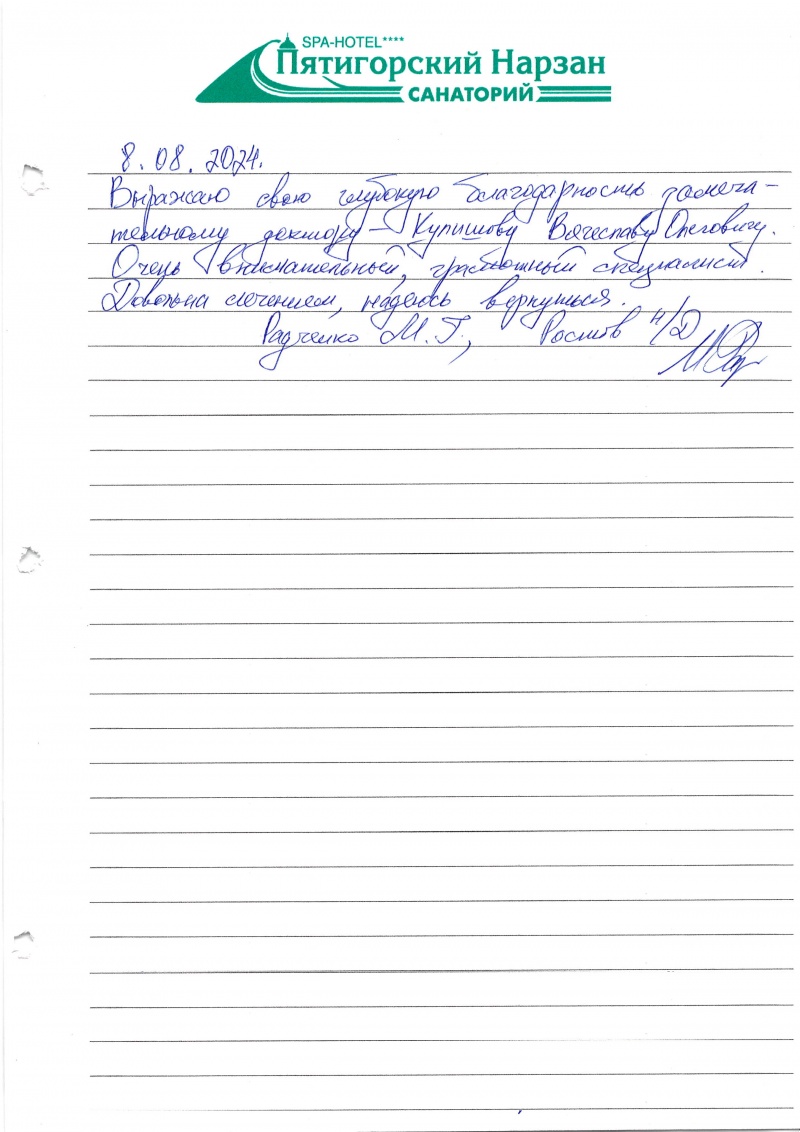 SPA-HOTEL****
Пятигорский Нарзан
САНАТОРИЙ
8.08.2024.
Выражаю свою глубокую благодарность замеча-
тельному доктору – Купишову Вячеславу Олеговичу.
Очень внимательный, грамотный специалист.
Довольна лечением, надеюсь вернуться.
Радченко М.Г., Ростов н/Д